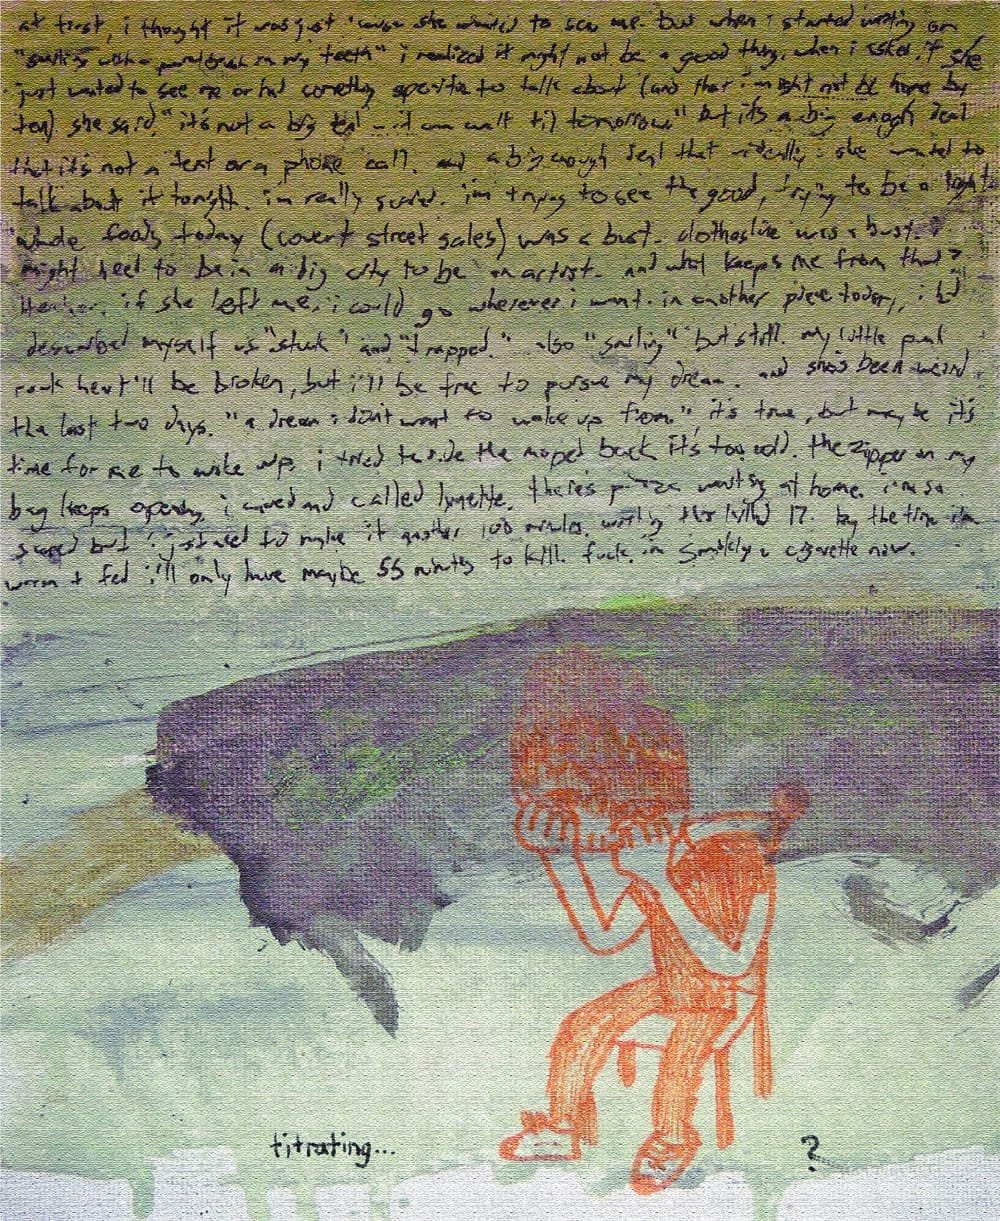 at first, i thought it was just 'cause she wanted to see me. but when i started writing on
"smiling with a paintbrush in my teeth" i realized it might not be a good thing. when i asked if she
just wanted to see me or had something specific to talk about (and that i might not be home by
ten) she said, "it's not a big deal - it can wait til tomorrow" but it's a big enough deal
that it's not a text or a phone call. and a big enough deal that ideally she wanted to
talk about it tonight. i'm really scared. i'm trying to see the good, trying to be a light
whole foods today (covert street sales) was a bust. clothesline was a bust. i
might need to be in a big city to be an artist. and what keeps me from that?
Heather. if she left me, i could go wherever i want. in another piece today, i'd
described myself as "stuck" and "trapped." also "smiling" but still. my little punk
rock heart'll be broken, but i'll be free to pursue my dream. and she's been weird
the last two days. "a dream i don't want to wake up from", it's true, but maybe it's
time for me to wake up. i tried to ride the moped but it's too cold. the zipper on my
bag keeps opening. i caved and called lynette. there's pizza waiting at home. i'm so
scared but i just need to make it another 100 minutes. the 17. by the time i'm
warm & fed i'll only have maybe 55 minutes to kill. fuck. i'm smoking a cigarette now.
titrating... ?